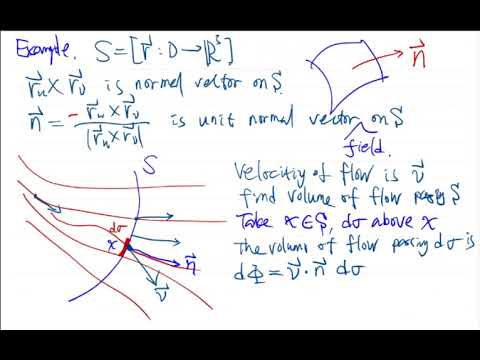 Example. S = [r⃗ : D → ℝ³]
r⃗ᵤ × r⃗ᵥ is normal vector on S.
n⃗ = - r⃗ᵤ × r⃗ᵥ / |r⃗ᵤ × r⃗ᵥ| is unit normal vector on S
field.
n⃗
S
dσ
x
n⃗
v⃗
v⃗
Velocitiy of flow is v⃗
find volume of flow passing S
Take x ∈ S, dσ above x
The volume of flow passing dσ is
dΦ = v⃗ · n⃗ dσ